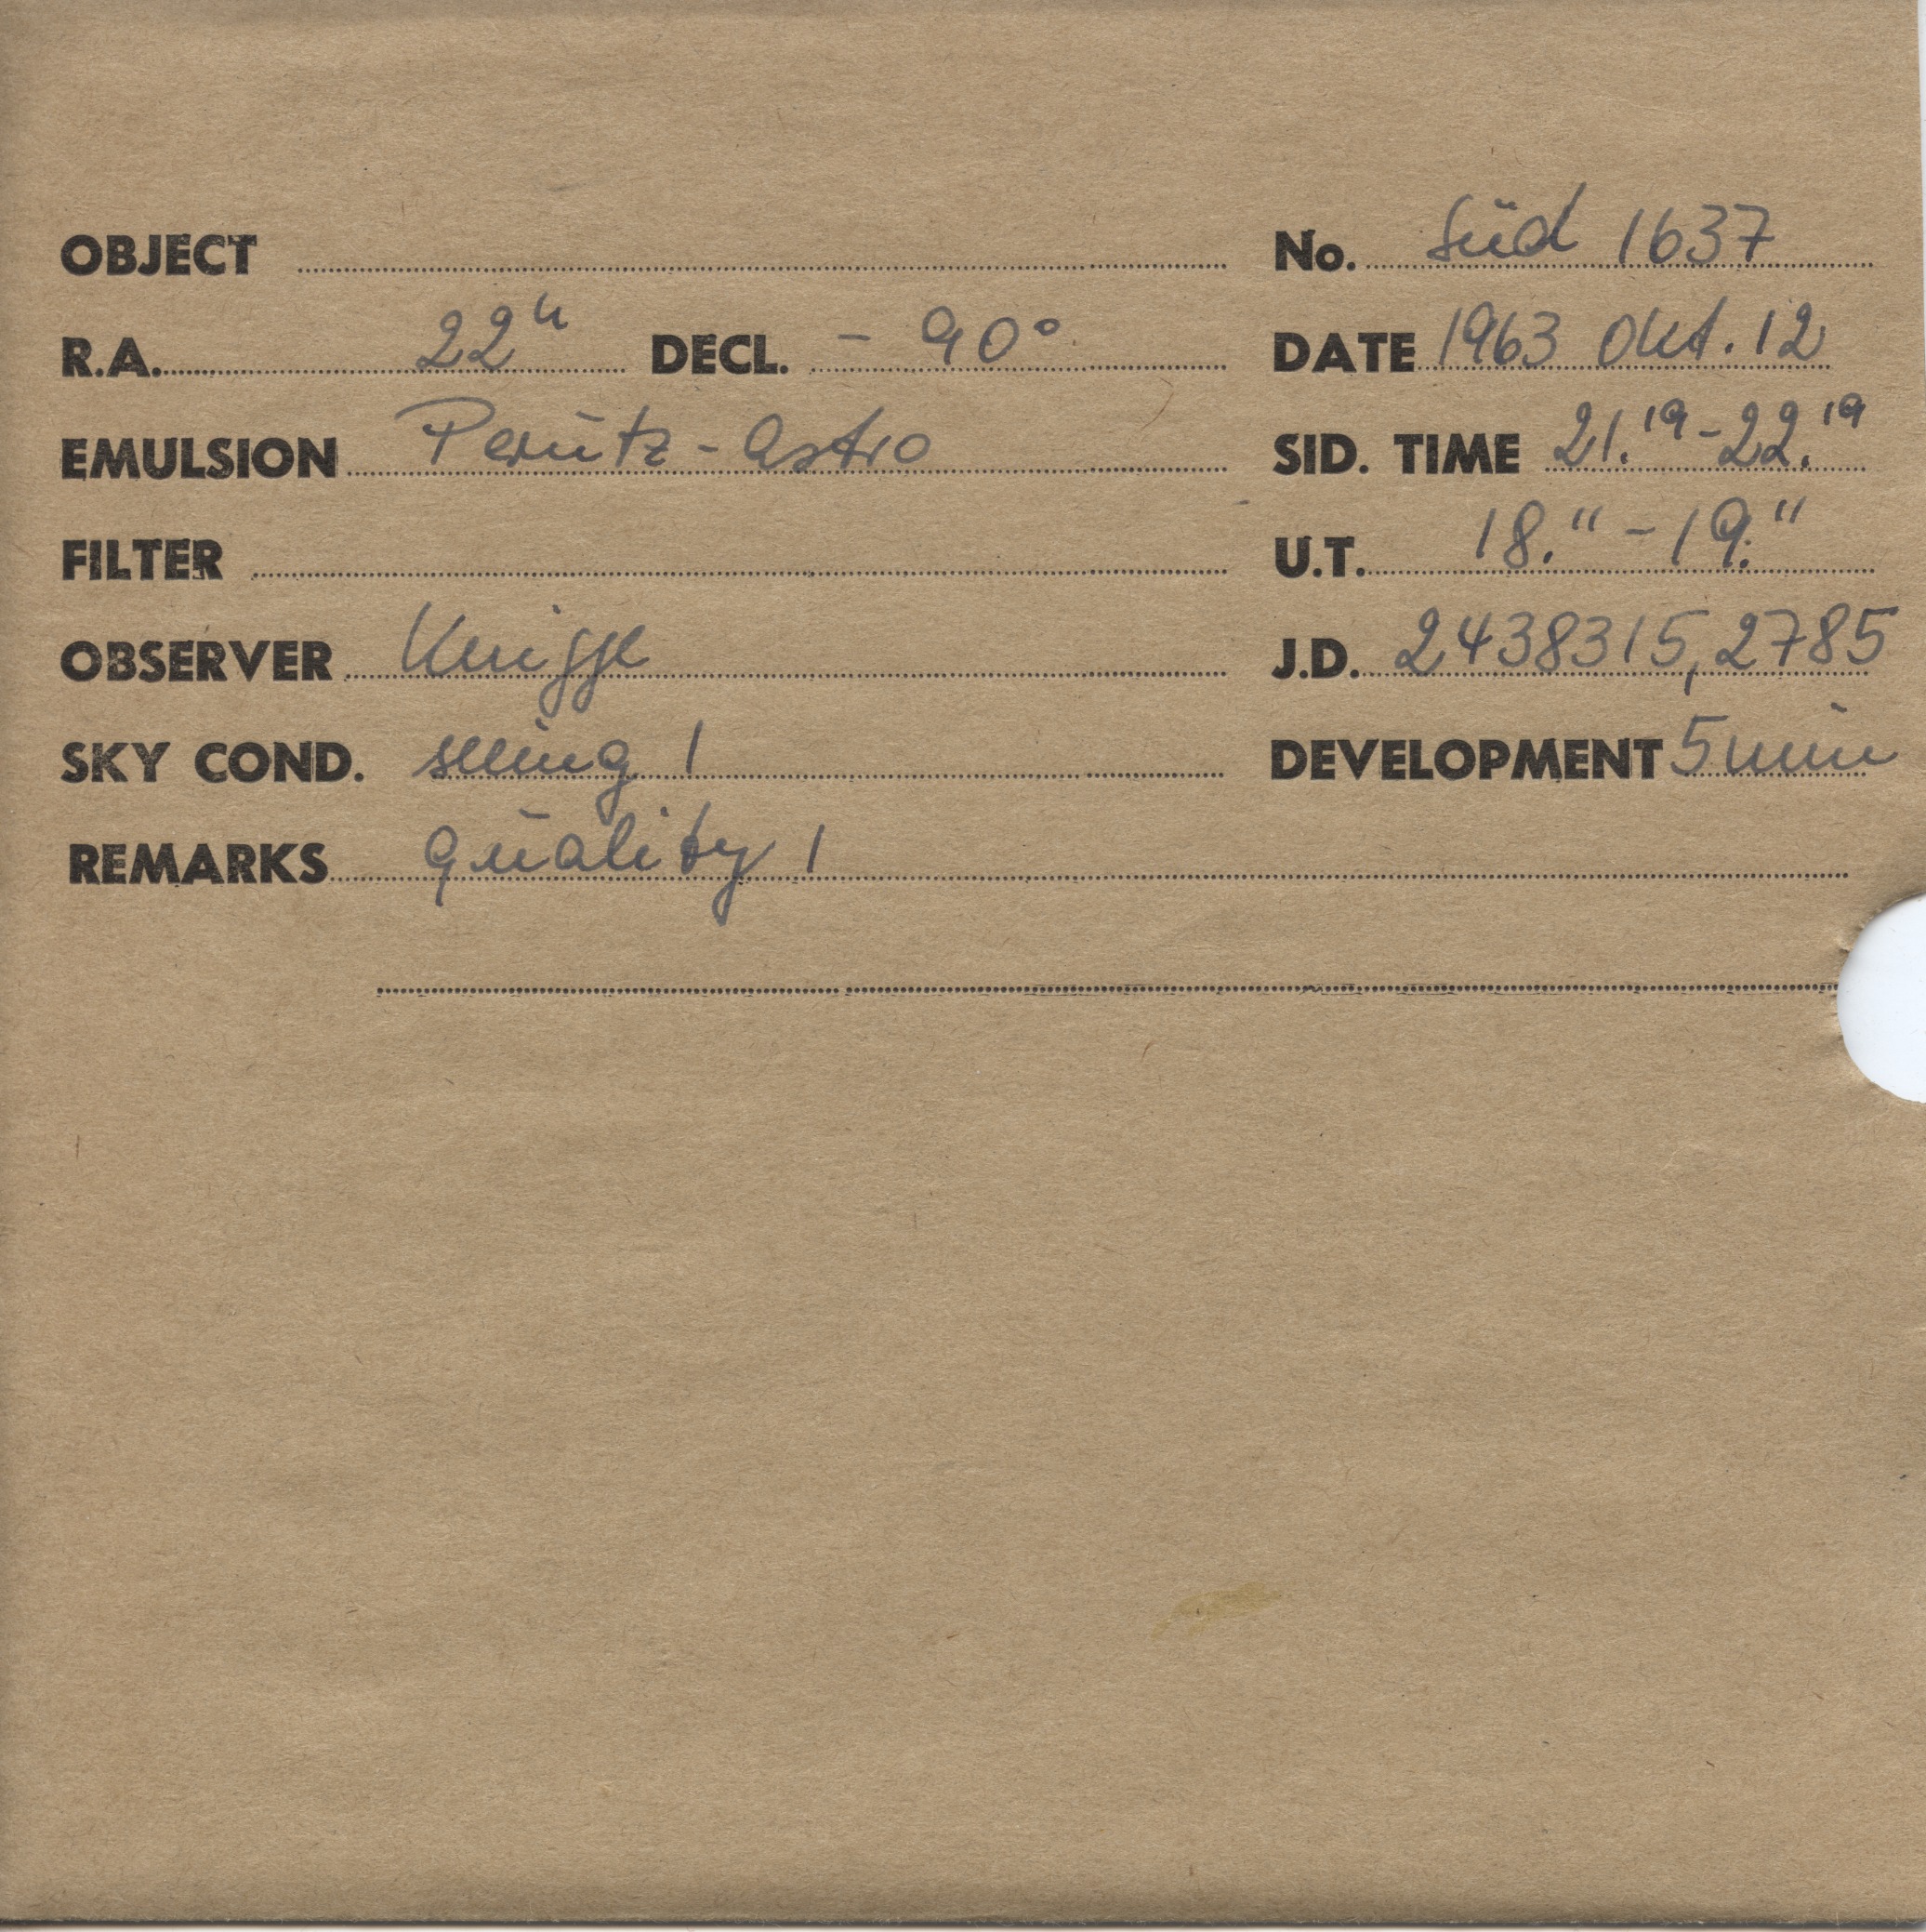 OBJECT No. Süd 1637
R.A. 22h DECL. - 90° DATE 1963 Okt. 12
EMULSION Perutz - Astro SID. TIME 21.19 - 22.19
FILTER U.T. 18.11 - 19.11
OBSERVER Knigge J.D. 2438315,2785
SKY COND. seeing 1 DEVELOPMENT 5 min
REMARKS quality 1